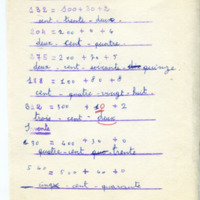 132 = 100 + 30 + 2
cent - trente - deux
204 = 200 + 0 + 4
deux - cent - quatre
275 = 200 + 70 + 5
deux - cent - soixante - quinze
188 = 100 + 80 + 8
cent - quatre - vingt - huit
302 = 300 + 0 + 2
trois - cent - deux
430 = 400 + 30 + 0
quatre - cent - trente
540 = 500 + 40 + 0
cent - quarante